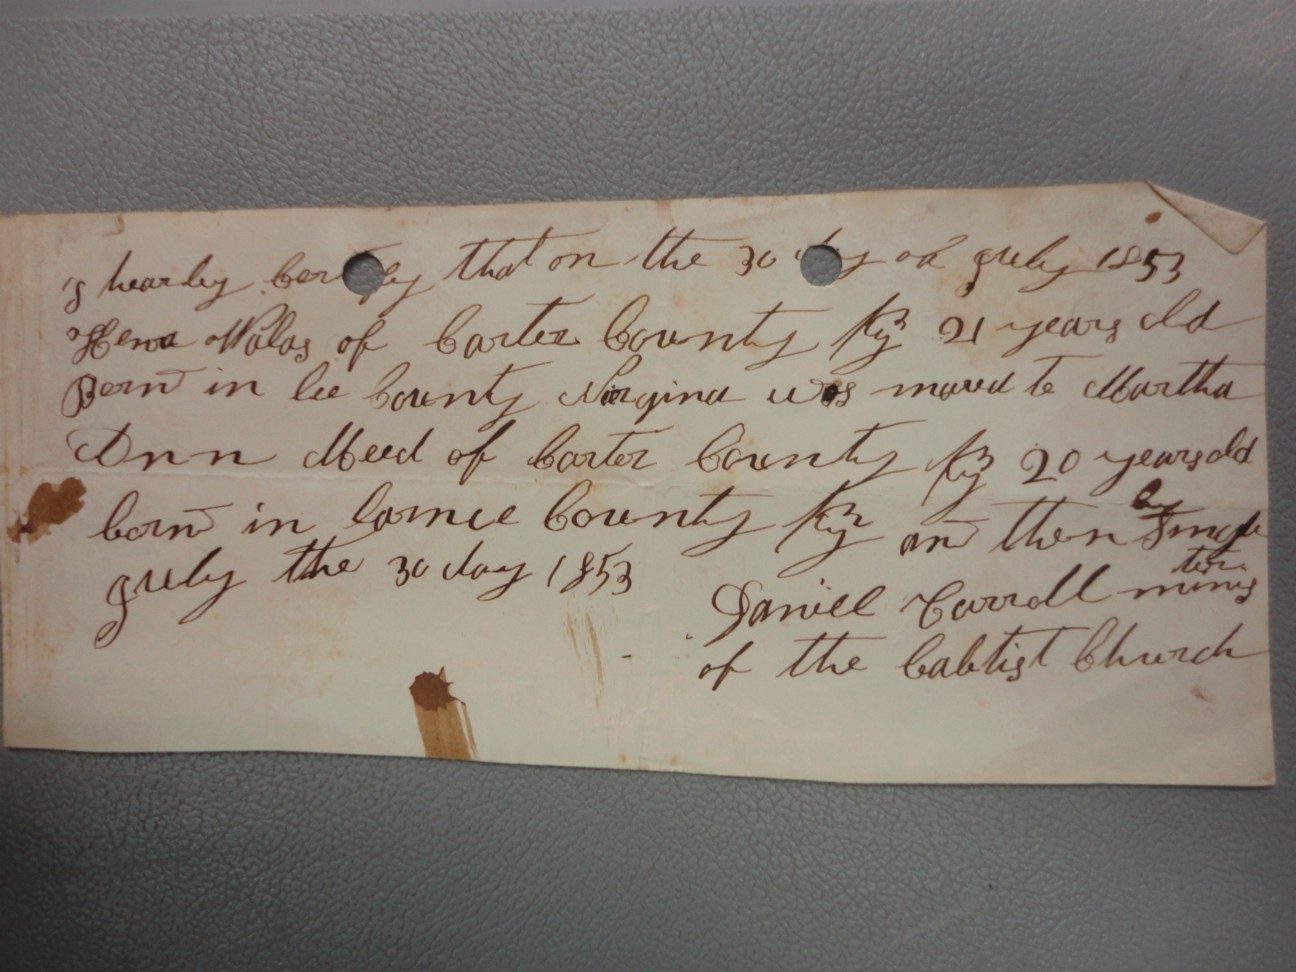 I hearby cer fy that on the 30 d y of July 1853
of Carter County Ky 21 years old
Born in lee County Virgina was mared to Martha
Ann Meed of Carter County Ky 20 years old
born in County Ky and then by
July the 30 day 1853
Daniel Carroll minis
ter
of the babtist Church